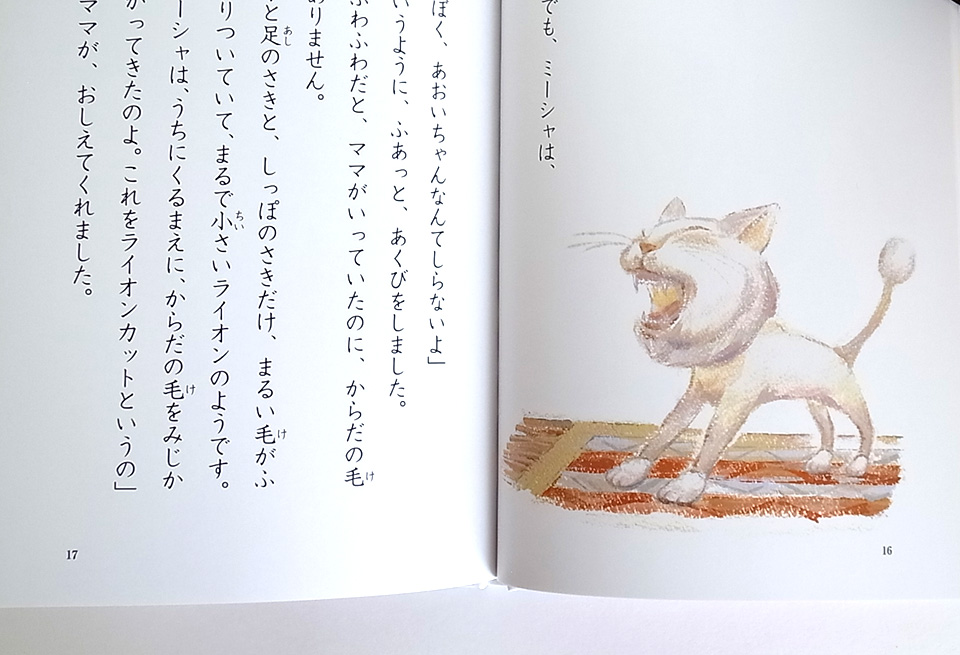 でも、ミーシャは、
16
ぼく、あおいちゃんなんてしらないよ」
いうように、ふあっと、あくびをしました。
ふわふわだと、ママがいっていたのに、からだの毛
ありません。
と足のさきと、しっぽのさきだけ、まるい毛がふ
りついていて、まるで小さいライオンのようです。
ーシャは、うちにくるまえに、からだの毛をみじか
がってきたのよ。これをライオンカットというの」
ママが、おしえてくれました。
17